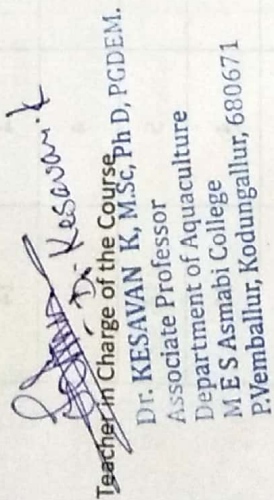 Dr. Keesavan.k
Teacher in Charge of the Course
Dr. KESAVAN K, M.Sc, Ph D, PGDEM.
Associate Professor
Department of Aquaculture
M E S Asmabi College
P.Vemballur, Kodungallur, 680671